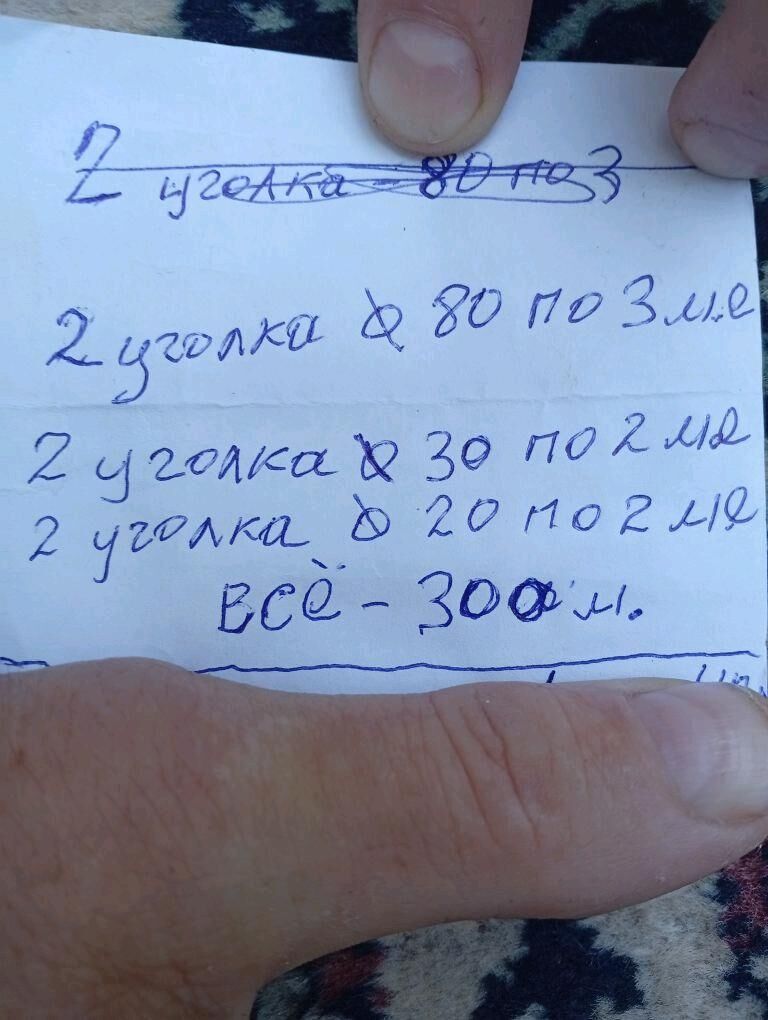 2 уголка - 80 по 3
2 уголка ϕ 80 по 3 м.е
2 уголка ϕ 30 по 2 ме
2 уголка ϕ 20 по 2 ме
всё - 300 м.